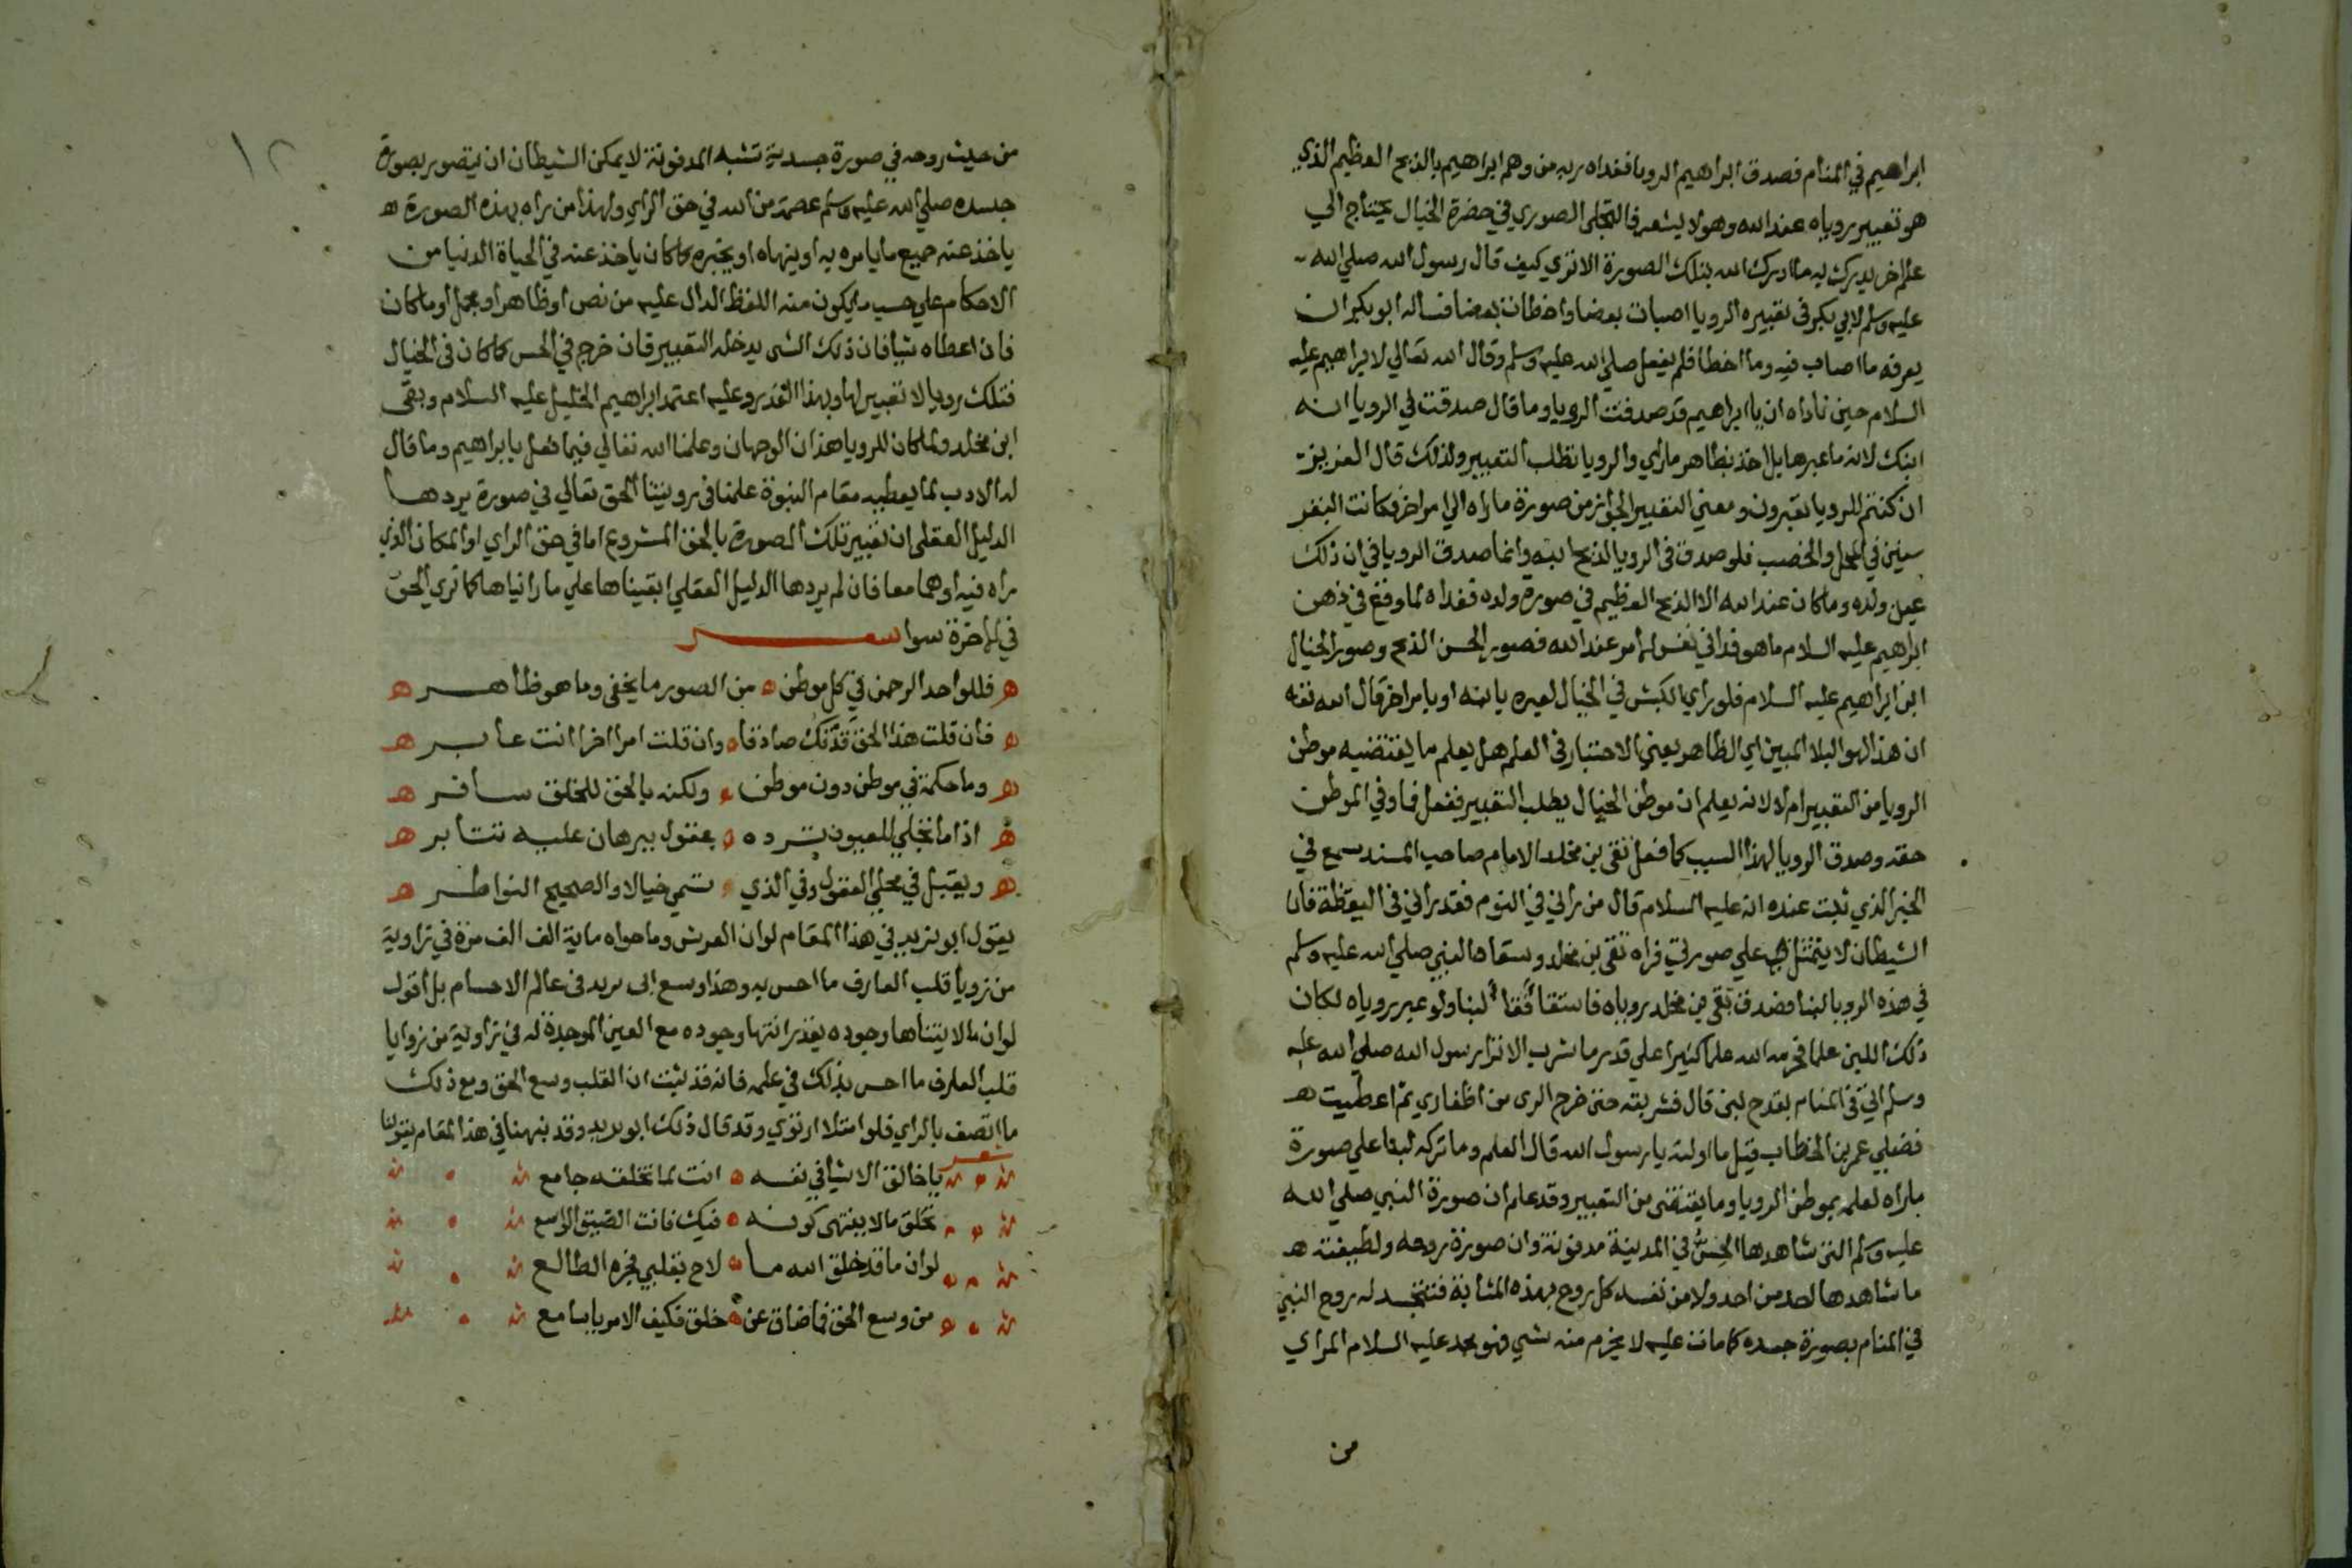 ابراهيم في المنام فصدق ابراهيم الرويا ففداه ربه من وهم ابراهيم بالذبح العظيم الذي
هو تعبير روياه عند الله وهو لا يشعر فالتجلى الصوري في حضرة الخيال يحتاج الي
علم اخر يدرك به ما ادرك الله بتلك الصورة الا تري كيف قال رسول الله صلي الله
عليه وسلم لابي بكر في تعبيره الرويا اصبات بعضا واخطات بعضا فساله ابو بكر ان
يعرفه ما اصاب فيه وما اخطا فلم يفعل صلي الله عليه وسلم وقال الله تعالي لابراهيم عليه
السلام حين ناداه ان يا ابراهيم قد صدقت الرويا وما قال صدقت في الرويا انه
ابنك لانه ما عبرها بل اخذ بظاهر ماراي والرويا تطلب التعبير ولذلك قال العزيز
ان كنتم للرويا تعبرون ومعني التعبير الجواز من صورة ما راه الي امر اخر فكانت البقر
سنين في المحل والخصب فلو صدق في الرويا لذبح ابنه وانما صدق الرويا في ان ذلك
عين ولده وما كان عند الله الا الذبح العظيم في صورة ولده ففداه لما وقع في ذهن
ابراهيم عليه السلام ما هو فدا في نفس الامر عند الله فصور الحس الذبح وصور الخيال
ابن ابراهيم عليه السلام فلو راي الكبش في الخيال لعبره بابنه او بامر اخر قال الله تعه
ان هذا لهو البلا المبين اي الظاهر يعني الاختبار في العلم هل يعلم ما يقتضيه موطن
الرويا من التعبير ام لا لانه يعلم ان موطن الخيال يطلب التعبير فغفل فما وفي الموطن
حقه وصدق الرويا لهذا السبب كما فعل تقى بن مخلد الامام صاحب المسند سمع في
الخبر الذي ثبت عنده انه عليه السلام قال من راني في النوم فقد راني في اليقظة فان
الشيطان لا يتمثل علي صورتي فراه تقى بن مخلد وسقاه النبي صلي الله عليه وسلم
في هذه الرويا لبنا فصدق تقى بن مخلد روياه فاستقا فقا لبنا ولو عبر روياه لكان
ذلك اللبن علما فحرمه الله علما كثيرا علي قدر ما شرب الا ترا رسول الله صلي الله عليه
وسلم اتي في المنام بقدح لبن قال فشربته حتى خرج الرى من اظفاري ثم اعطيت
فضلي عمر بن الخطاب قيل ما اولته يا رسول الله قال العلم وما تركه لبنا علي صورة
ماراه لعلمه بموطن الرويا وما يقتضى من التعبير وقد علم ان صورة النبي صلي الله
عليه وسلم التي شاهدها الحس في المدينة مدفونة وان صورة روحه ولطيفته
ما شاهدها احد من احد ولا من نفسه كل روح بهذه المثابة فتتجسد له روح النبي
في المنام بصورة جسده كما مات عليه لا يخرم منه شي فهو محمد عليه السلام المراي
من
١٢
من حيث روحه في صورة جسدية تشبه المدفونة لا يمكن الشيطان ان يتصور بصورة
جسده صلي الله عليه وسلم عصمة من الله في حق الراي ولهذا من راه بهذه الصورة
ياخذ عنه جميع ما يامره به او ينهاه او يخبره كما كان ياخذ عنه في الحياة الدنيا من
الاحكام علي حسب ما يكون منه اللفظ الدال عليه من نص او ظاهر او مجمل او ما كان
فان اعطاه شيا فان ذلك الشى يدخله التعبير فان خرج في الحس كما كان في الخيال
فتلك رويا لا تعبير لها وبهذا القدر وعليه اعتمد ابراهيم الخليل عليه السلام وبقى
ابن مخلد ولما كان للرويا هذان الوجهان وعلمنا الله تعالي فيما فعل بابراهيم وما قال
له الادب لما يعطيه مقام النبوة علمنا في رويتنا الحق تعالي في صورة يردها
الدليل العقلي ان تعبير تلك الصورة بالحق المشروع اما في حق الراي او المكان الذي
راه فيه او هما معا فان لم يردها الدليل العقلي ابقيناها علي ما رايناها كما تري الحق
في الاخرة سوا شعر
فللواحد الرحمن في كل موطن من الصور ما يخفى وما هو ظاهر
فان قلت هذا الحق قد تك صادقا وان قلت امرا اخرا انت عابر
وما حكمه في موطن دون موطن ولكنه بالحق للخلق سافر
اذا ما تجلي للعيون ترده عقول ببرهان عليه تثابر
ويقبل في مجلي العقول وفي الذي تسمي خيالا والصحيح النواظر
يقول ابو يزيد في هذا المقام لو ان العرش وما حواه ماية الف الف مرة في زاوية
من زوايا قلب العارف ما احس به وهذا وسع ابى يزيد في عالم الاجسام بل اقول
لو ان ما لا يتناها وجوده يقدر انتها وجوده مع العين الموجدة له في زاوية من زوايا
قلب العارف ما احس بذلك في علمه فانه قد ثبت ان القلب وسع الحق ومع ذلك
ما اتصف بالراي فلو امتلا ارتوي وقد قال ذلك ابو يزيد وقد نبهنا في هذا المقام بقولنا
شعر
يا خالق الاشيا في نفسه انت لما تخلقه جامع
تخلق ما لا ينتهى كونه فيك فانت الضيق الواسع
لو ان ما قد خلق الله ما لاح بقلبي فجره الطالع
من وسع الحق فما ضاق عن خلق فكيف الامر يا سامع